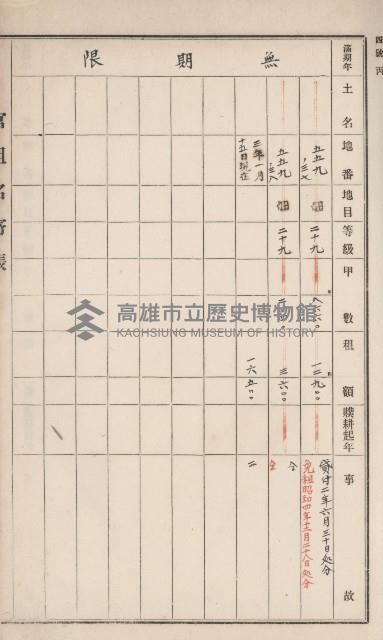 四號 丙
滿期年
土名
地番
地目
等級
甲數
租額
贌耕起年
事故
無期限
五五九
ノ三七
二十九
一二九〇〇
貸付二年六月三十日処分
免租昭和四年十二月二十八日処分
五五九
ノ三八
二十九
三六〇〇
仝
仝
三年一月
十五日現在
一六五〇〇
二
高雄市立歷史博物館
KAOHSIUNG MUSEUM OF HISTORY